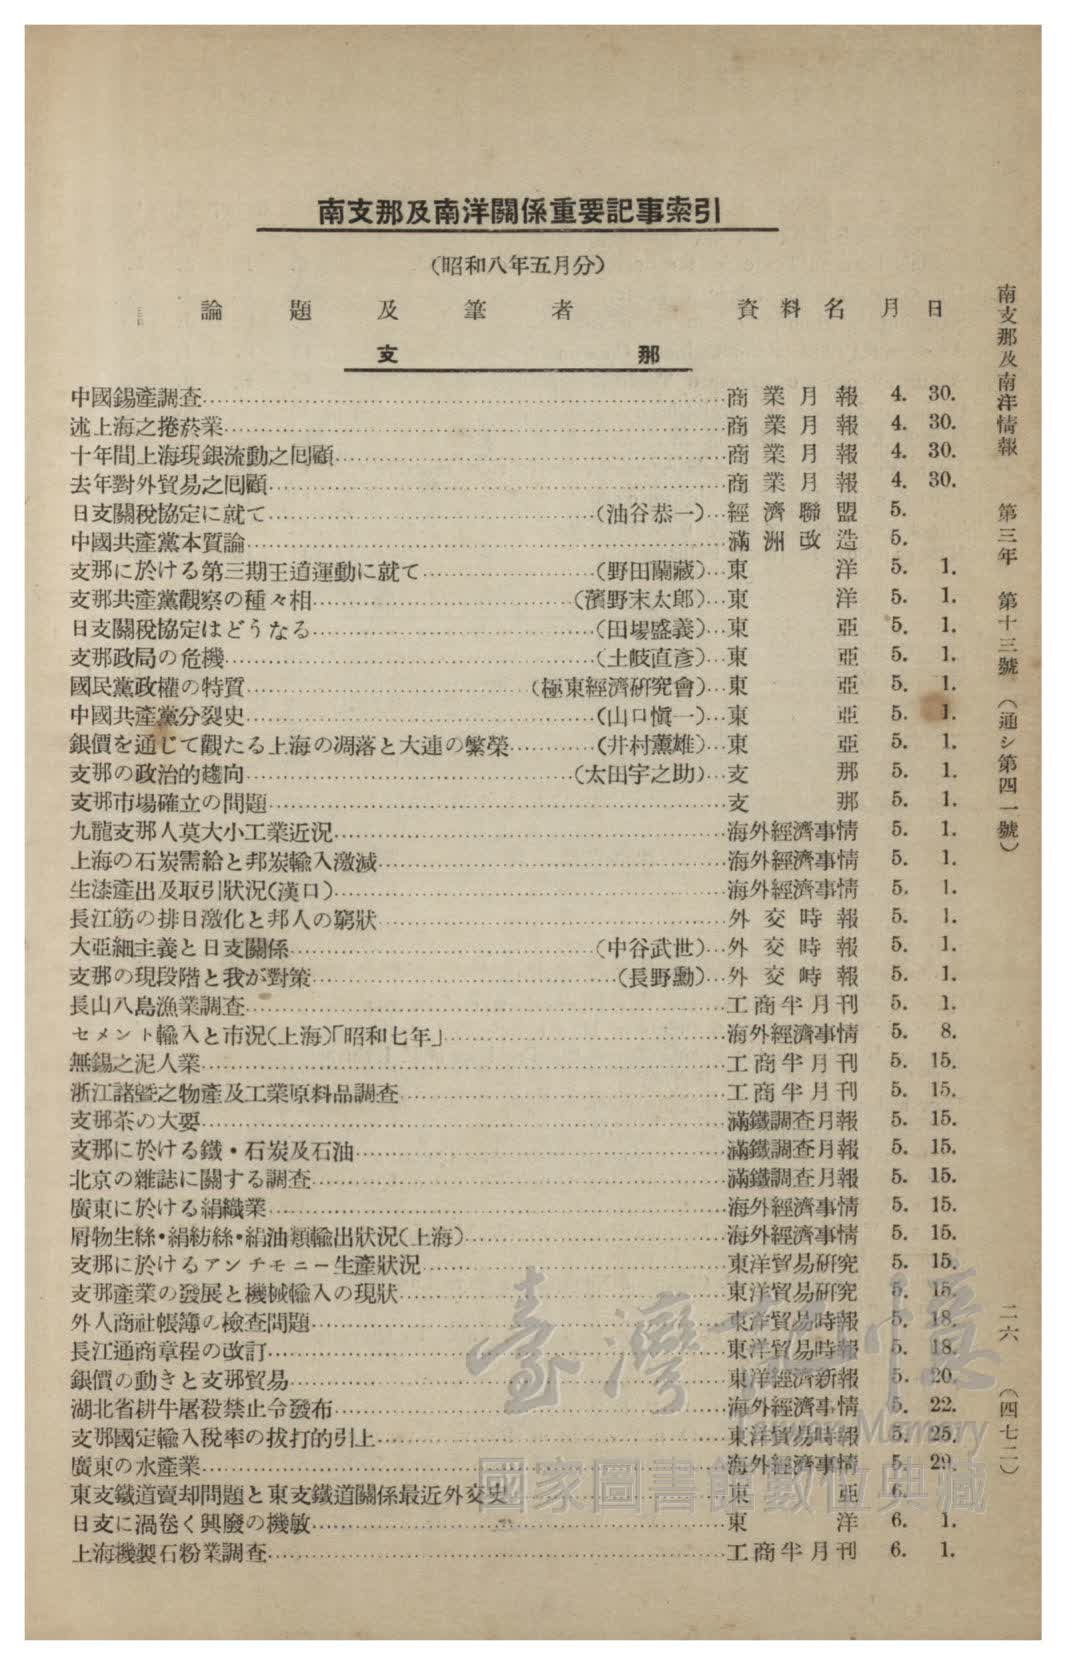 南支那及南洋關係重要記事索引
(昭和八年五月分)
論題及筆者 資料名 月 日
支那
中國錫產調査 商業月報 4. 30.
述上海之捲菸業 商業月報 4. 30.
十年間上海現銀流動之囘顧 商業月報 4. 30.
去年對外貿易之囘顧 商業月報 4. 30.
日支關稅協定に就て (油谷恭一) 經濟聯盟 5.
中國共產黨本質論 滿洲改造 5.
支那に於ける第三期王道運動に就て (野田蘭藏) 東洋 5. 1.
支那共產黨觀察の種々相 (濱野末太郎) 東洋 5. 1.
日支關稅協定はどうなる (田場盛義) 東亞 5. 1.
支那政局の危機 (土岐直彥) 東亞 5. 1.
國民黨政權の特質 (極東經濟硏究會) 東亞 5. 1.
中國共產黨分裂史 (山口愼一) 東亞 5. 1.
銀價を通じて觀たる上海の凋落と大連の繁榮 (井村薰雄) 東亞 5. 1.
支那の政治的趨向 (太田宇之助) 支那 5. 1.
支那市場確立の問題 支那 5. 1.
九龍支那人莫大小工業近況 海外經濟事情 5. 1.
上海の石炭需給と邦炭輸入激減 海外經濟事情 5. 1.
生漆產出及取引狀況(漢口) 海外經濟事情 5. 1.
長江筋の排日激化と邦人の窮狀 外交時報 5. 1.
大亞細主義と日支關係 (中谷武世) 外交時報 5. 1.
支那の現段階と我が對策 (長野勳) 外交時報 5. 1.
長山八島漁業調査 工商半月刊 5. 1.
セメント輸入と市況(上海)「昭和七年」 海外經濟事情 5. 8.
無錫之泥人業 工商半月刊 5. 15.
浙江諸曁之物產及工業原料品調査 工商半月刊 5. 15.
支那茶の大要 滿鐵調査月報 5. 15.
支那に於ける鐵・石炭及石油 滿鐵調査月報 5. 15.
北京の雜誌に關する調査 滿鐵調査月報 5. 15.
廣東に於ける絹織業 海外經濟事情 5. 15.
屑物生絲・絹紡絲・絹油類輸出狀況(上海) 海外經濟事情 5. 15.
支那に於けるアンチモニー生產狀況 東洋貿易硏究 5. 15.
支那產業の發展と機械輸入の現狀 東洋貿易硏究 5. 15.
外人商社帳簿の檢査問題 東洋貿易時報 5. 18.
長江通商章程の改訂 東洋貿易時報 5. 18.
銀價の動きと支那貿易 東洋經濟新報 5. 20.
湖北省耕牛屠殺禁止令發布 海外經濟事情 5. 22.
支那國定輸入稅率の拔打的引上 東洋貿易時報 5. 25.
廣東の水產業 海外經濟事情 5. 29.
東支鐵道賣却問題と東支鐵道關係最近外交史 東亞 6.
日支に渦卷く興廢の機敏 東洋 6. 1.
上海機製石粉業調査 工商半月刊 6. 1.
南支那及南洋情報 第三年 第十三號 (通シ第四一號) 二六 (四七二)
臺灣記憶
Taiwan Memory
國家圖書館數位典藏